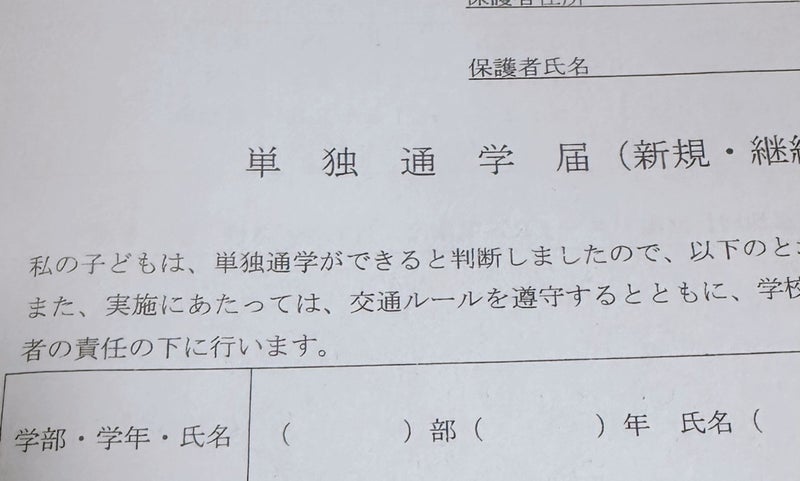 保護者住所
保護者氏名
単独通学届（新規・継続
私の子どもは、単独通学ができると判断しましたので、以下のと
また、実施にあたっては、交通ルールを遵守するとともに、学校
者の責任の下に行います。
学部・学年・氏名 （　　　）部（　　　）年 氏名（